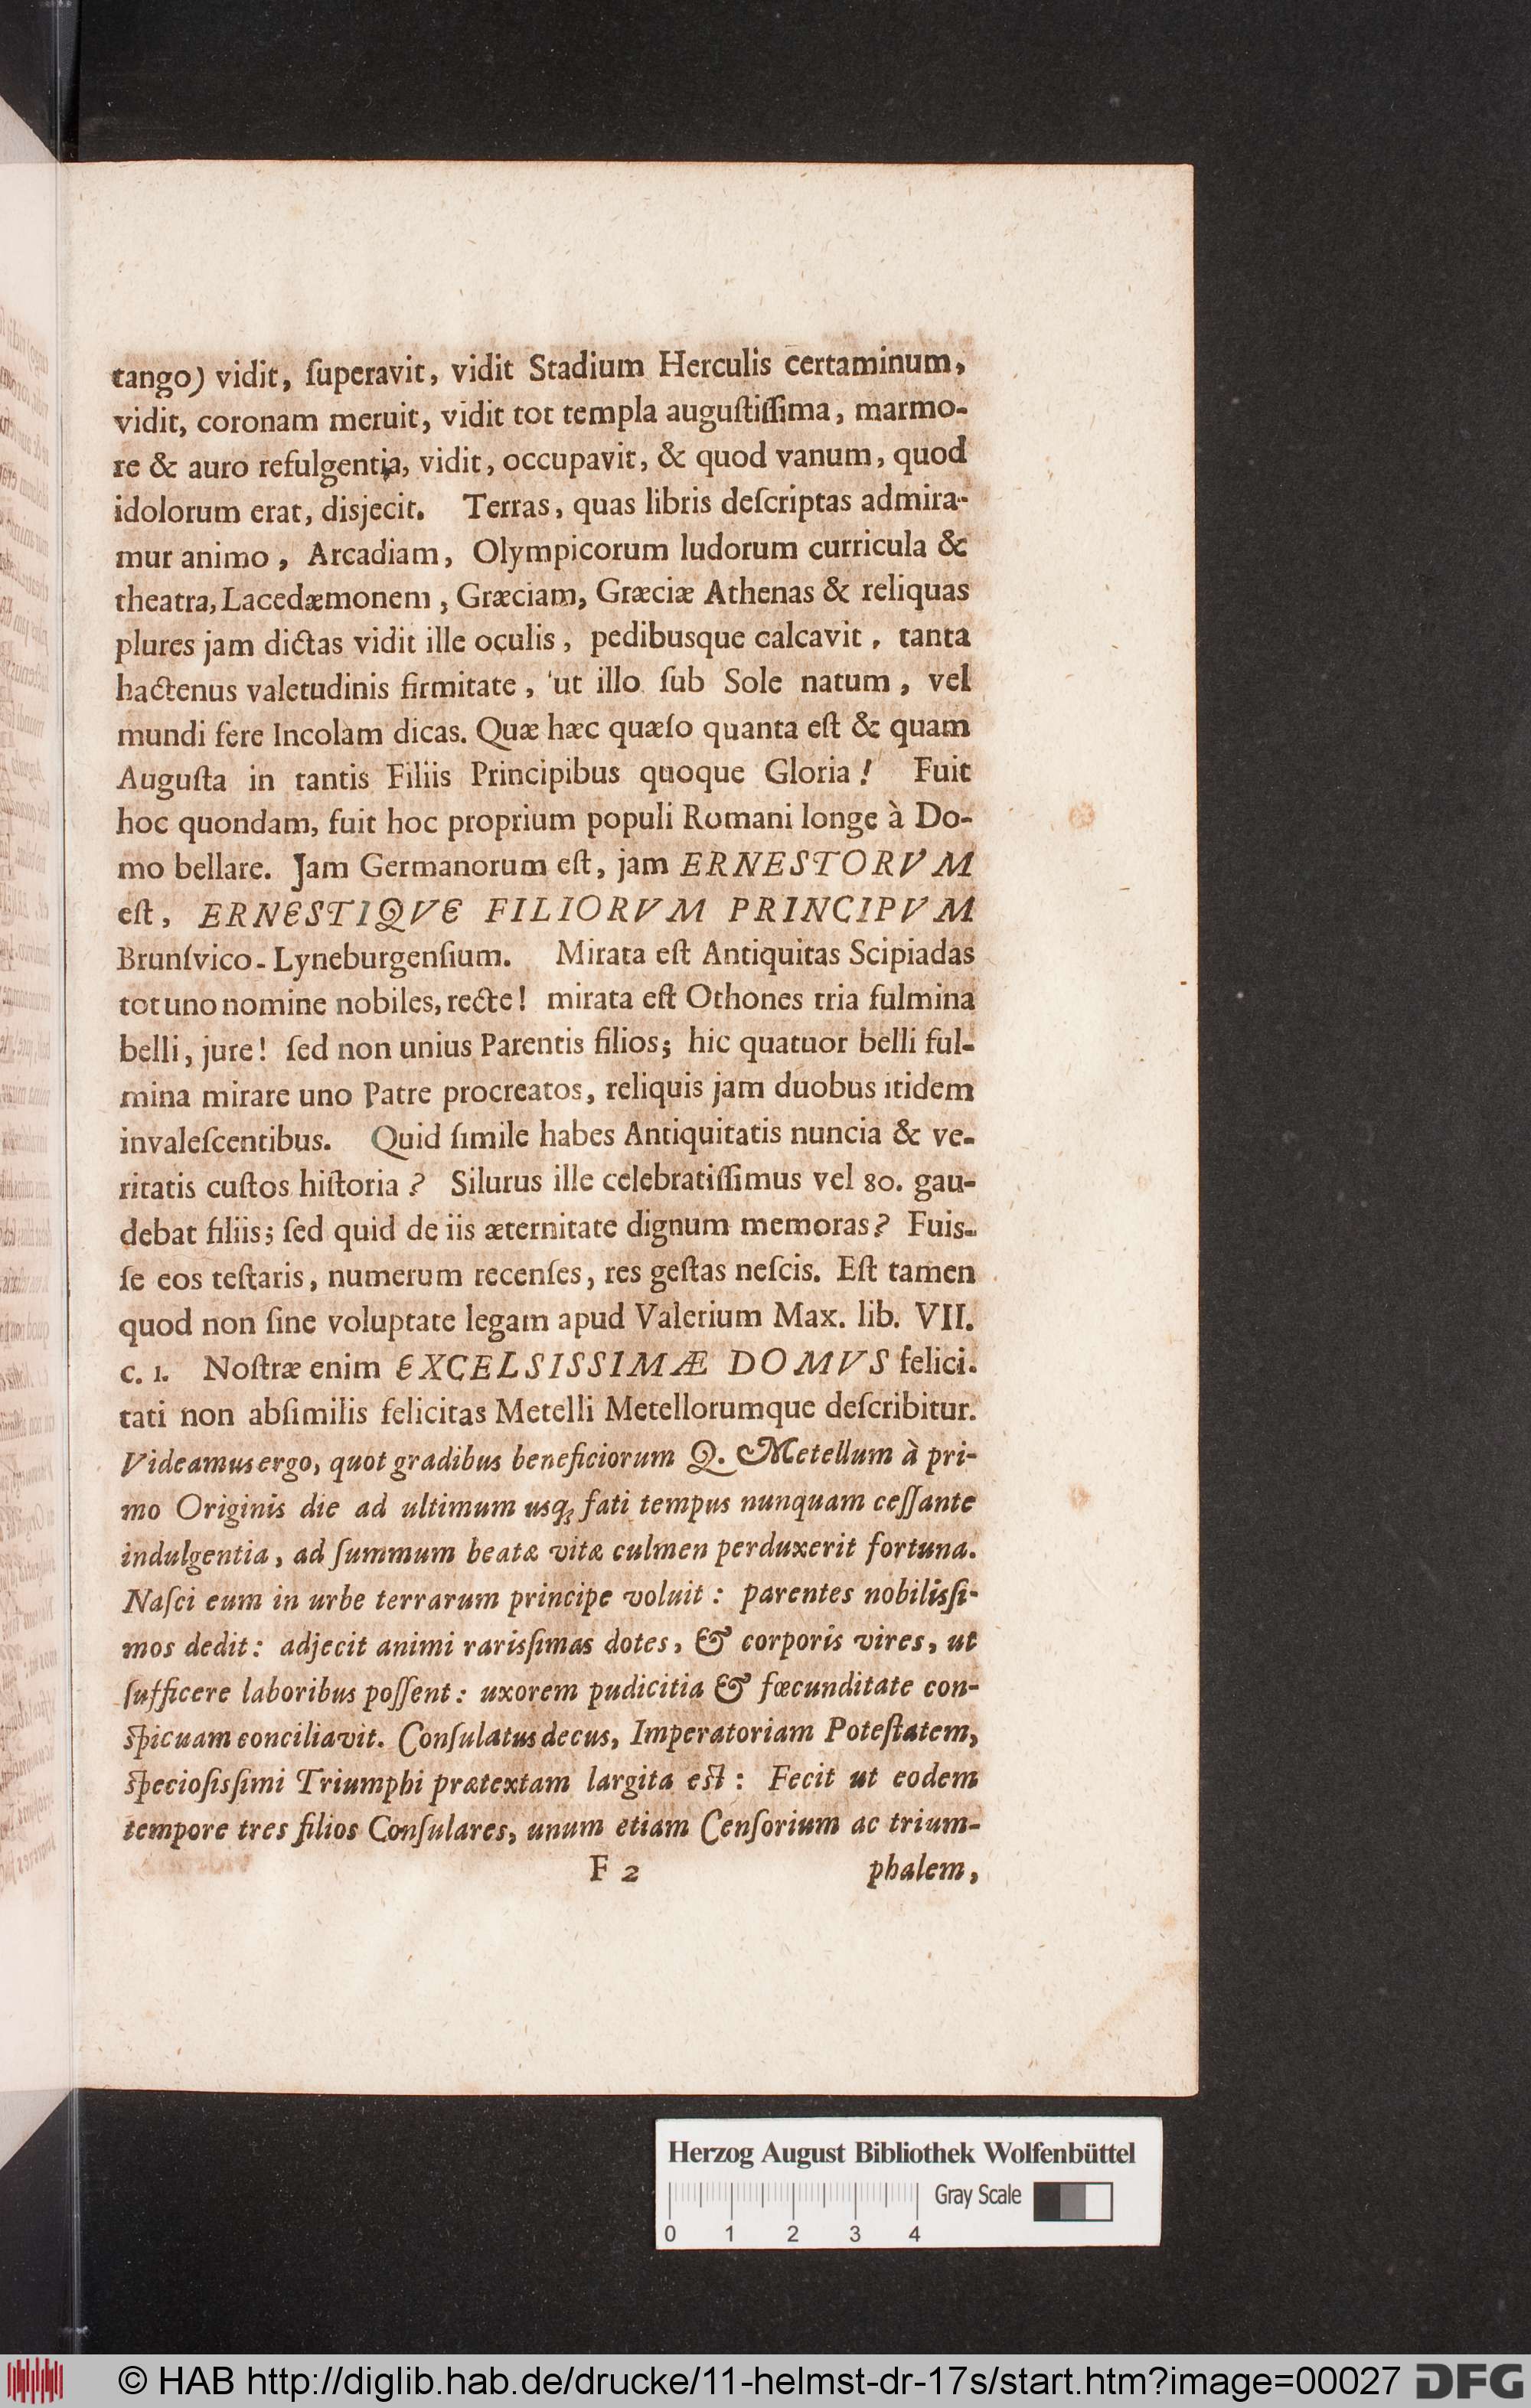 tango) vidit, ſuperavit, vidit Stadium Herculis certaminum,
vidit, coronam meruit, vidit tot templa auguſtiſſima, marmo-
re & auro refulgentia, vidit, occupavit, & quod vanum, quod
idolorum erat, disjecit. Terras, quas libris deſcriptas admira-
mur animo, Arcadiam, Olympicorum ludorum curricula &
theatra, Lacedæmonem, Græciam, Græciæ Athenas & reliquas
plures jam dictas vidit ille oculis, pedibusque calcavit, tanta
hactenus valetudinis firmitate, ut illo ſub Sole natum, vel
mundi fere Incolam dicas. Quæ hæc quæſo quanta eſt & quam
Auguſta in tantis Filiis Principibus quoque Gloria! Fuit
hoc quondam, fuit hoc proprium populi Romani longe à Do-
mo bellare. Jam Germanorum eſt, jam ERNESTORVM
eſt, ERNESTIQVE FILIORVM PRINCIPVM
Brunſvico-Lyneburgenſium. Mirata eſt Antiquitas Scipiadas
tot uno nomine nobiles, recte! mirata eſt Othones tria fulmina
belli, jure! ſed non unius Parentis filios; hic quatuor belli ful-
mina mirare uno Patre procreatos, reliquis jam duobus itidem
invaleſcentibus. Quid ſimile habes Antiquitatis nuncia & ve-
ritatis cuſtos hiſtoria? Silurus ille celebratiſſimus vel 80. gau-
debat filiis; ſed quid de iis æternitate dignum memoras? Fuis-
ſe eos teſtaris, numerum recenſes, res geſtas neſcis. Eſt tamen
quod non ſine voluptate legam apud Valerium Max. lib. VII.
c. 1. Noſtræ enim EXCELSISSIMÆ DOMVS felici-
tati non abſimilis felicitas Metelli Metellorumque deſcribitur.
Videamus ergo, quot gradibus beneficiorum Q. Metellum à pri-
mo Originis die ad ultimum usq; fati tempus nunquam ceſſante
indulgentia, ad ſummum beatæ vitæ culmen perduxerit fortuna.
Naſci eum in urbe terrarum principe voluit: parentes nobilisſi-
mos dedit: adjecit animi rarisſimas dotes, & corporis vires, ut
ſufficere laboribus poſſent: uxorem pudicitia & fœcunditate con-
ſpicuam conciliavit. Conſulatus decus, Imperatoriam Poteſtatem,
ſpecioſisſimi Triumphi prætextam largita eſt: Fecit ut eodem
tempore tres filios Conſulares, unum etiam Cenſorium ac trium-
F 2 phalem,
Herzog August Bibliothek Wolfenbüttel
Gray Scale
0 1 2 3 4
© HAB http://diglib.hab.de/drucke/11-helmst-dr-17s/start.htm?image=00027 DFG